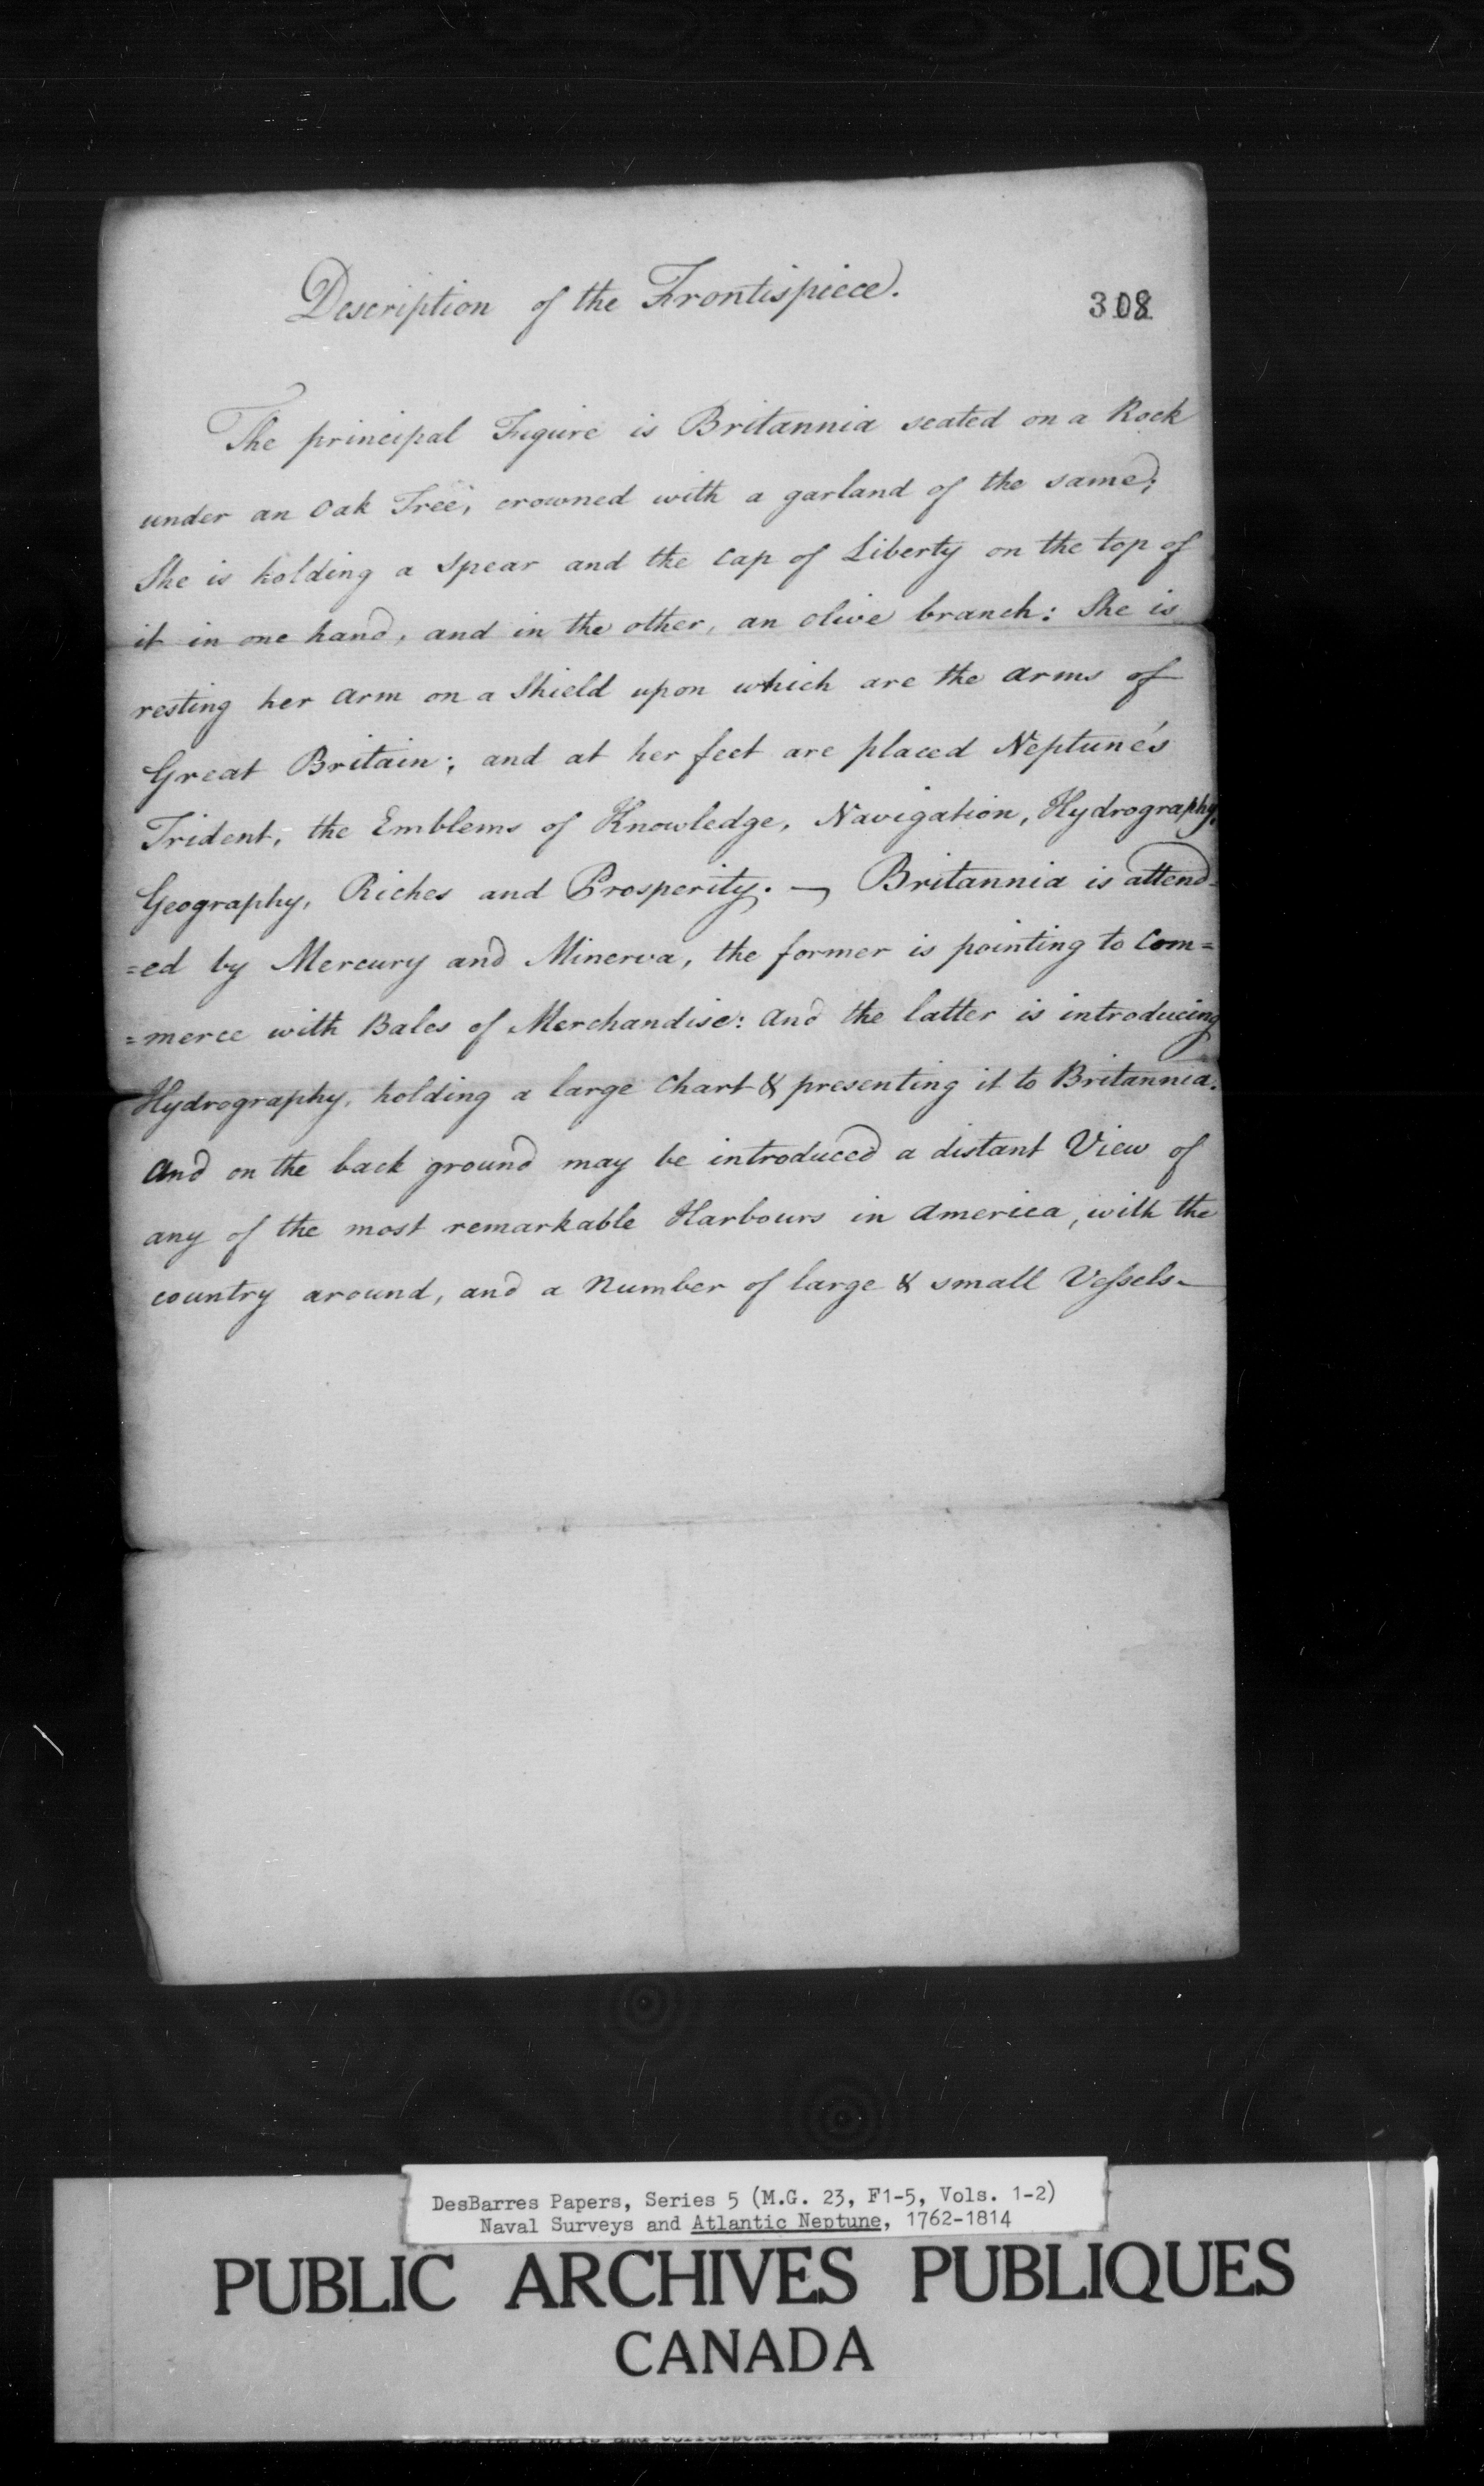 Description of the Frontispiece.
308
The principal Figure is Britannia seated on a Rock
under an Oak Tree, crowned with a garland of the same;
She is holding a spear and the Cap of Liberty on the top of
it in one hand, and in the other, an olive branch: She is
resting her arm on a Shield upon which are the arms of
Great Britain; and at her feet are placed Neptune's
Trident, the Emblems of Knowledge, Navigation, Hydrography,
Geography, Riches and Prosperity. — Britannia is attend-
=ed by Mercury and Minerva, the former is pointing to Com=
=merce with Bales of Merchandise: and the latter is introducing
Hydrography, holding a large Chart & presenting it to Britannia.
And on the back ground may be introduced a distant View of
any of the most remarkable Harbours in America, with the
country around, and a Number of large & small Vessels—
DesBarres Papers, Series 5 (M.G. 23, F1-5, Vols. 1-2)
Naval Surveys and Atlantic Neptune, 1762-1814
PUBLIC ARCHIVES PUBLIQUES
CANADA